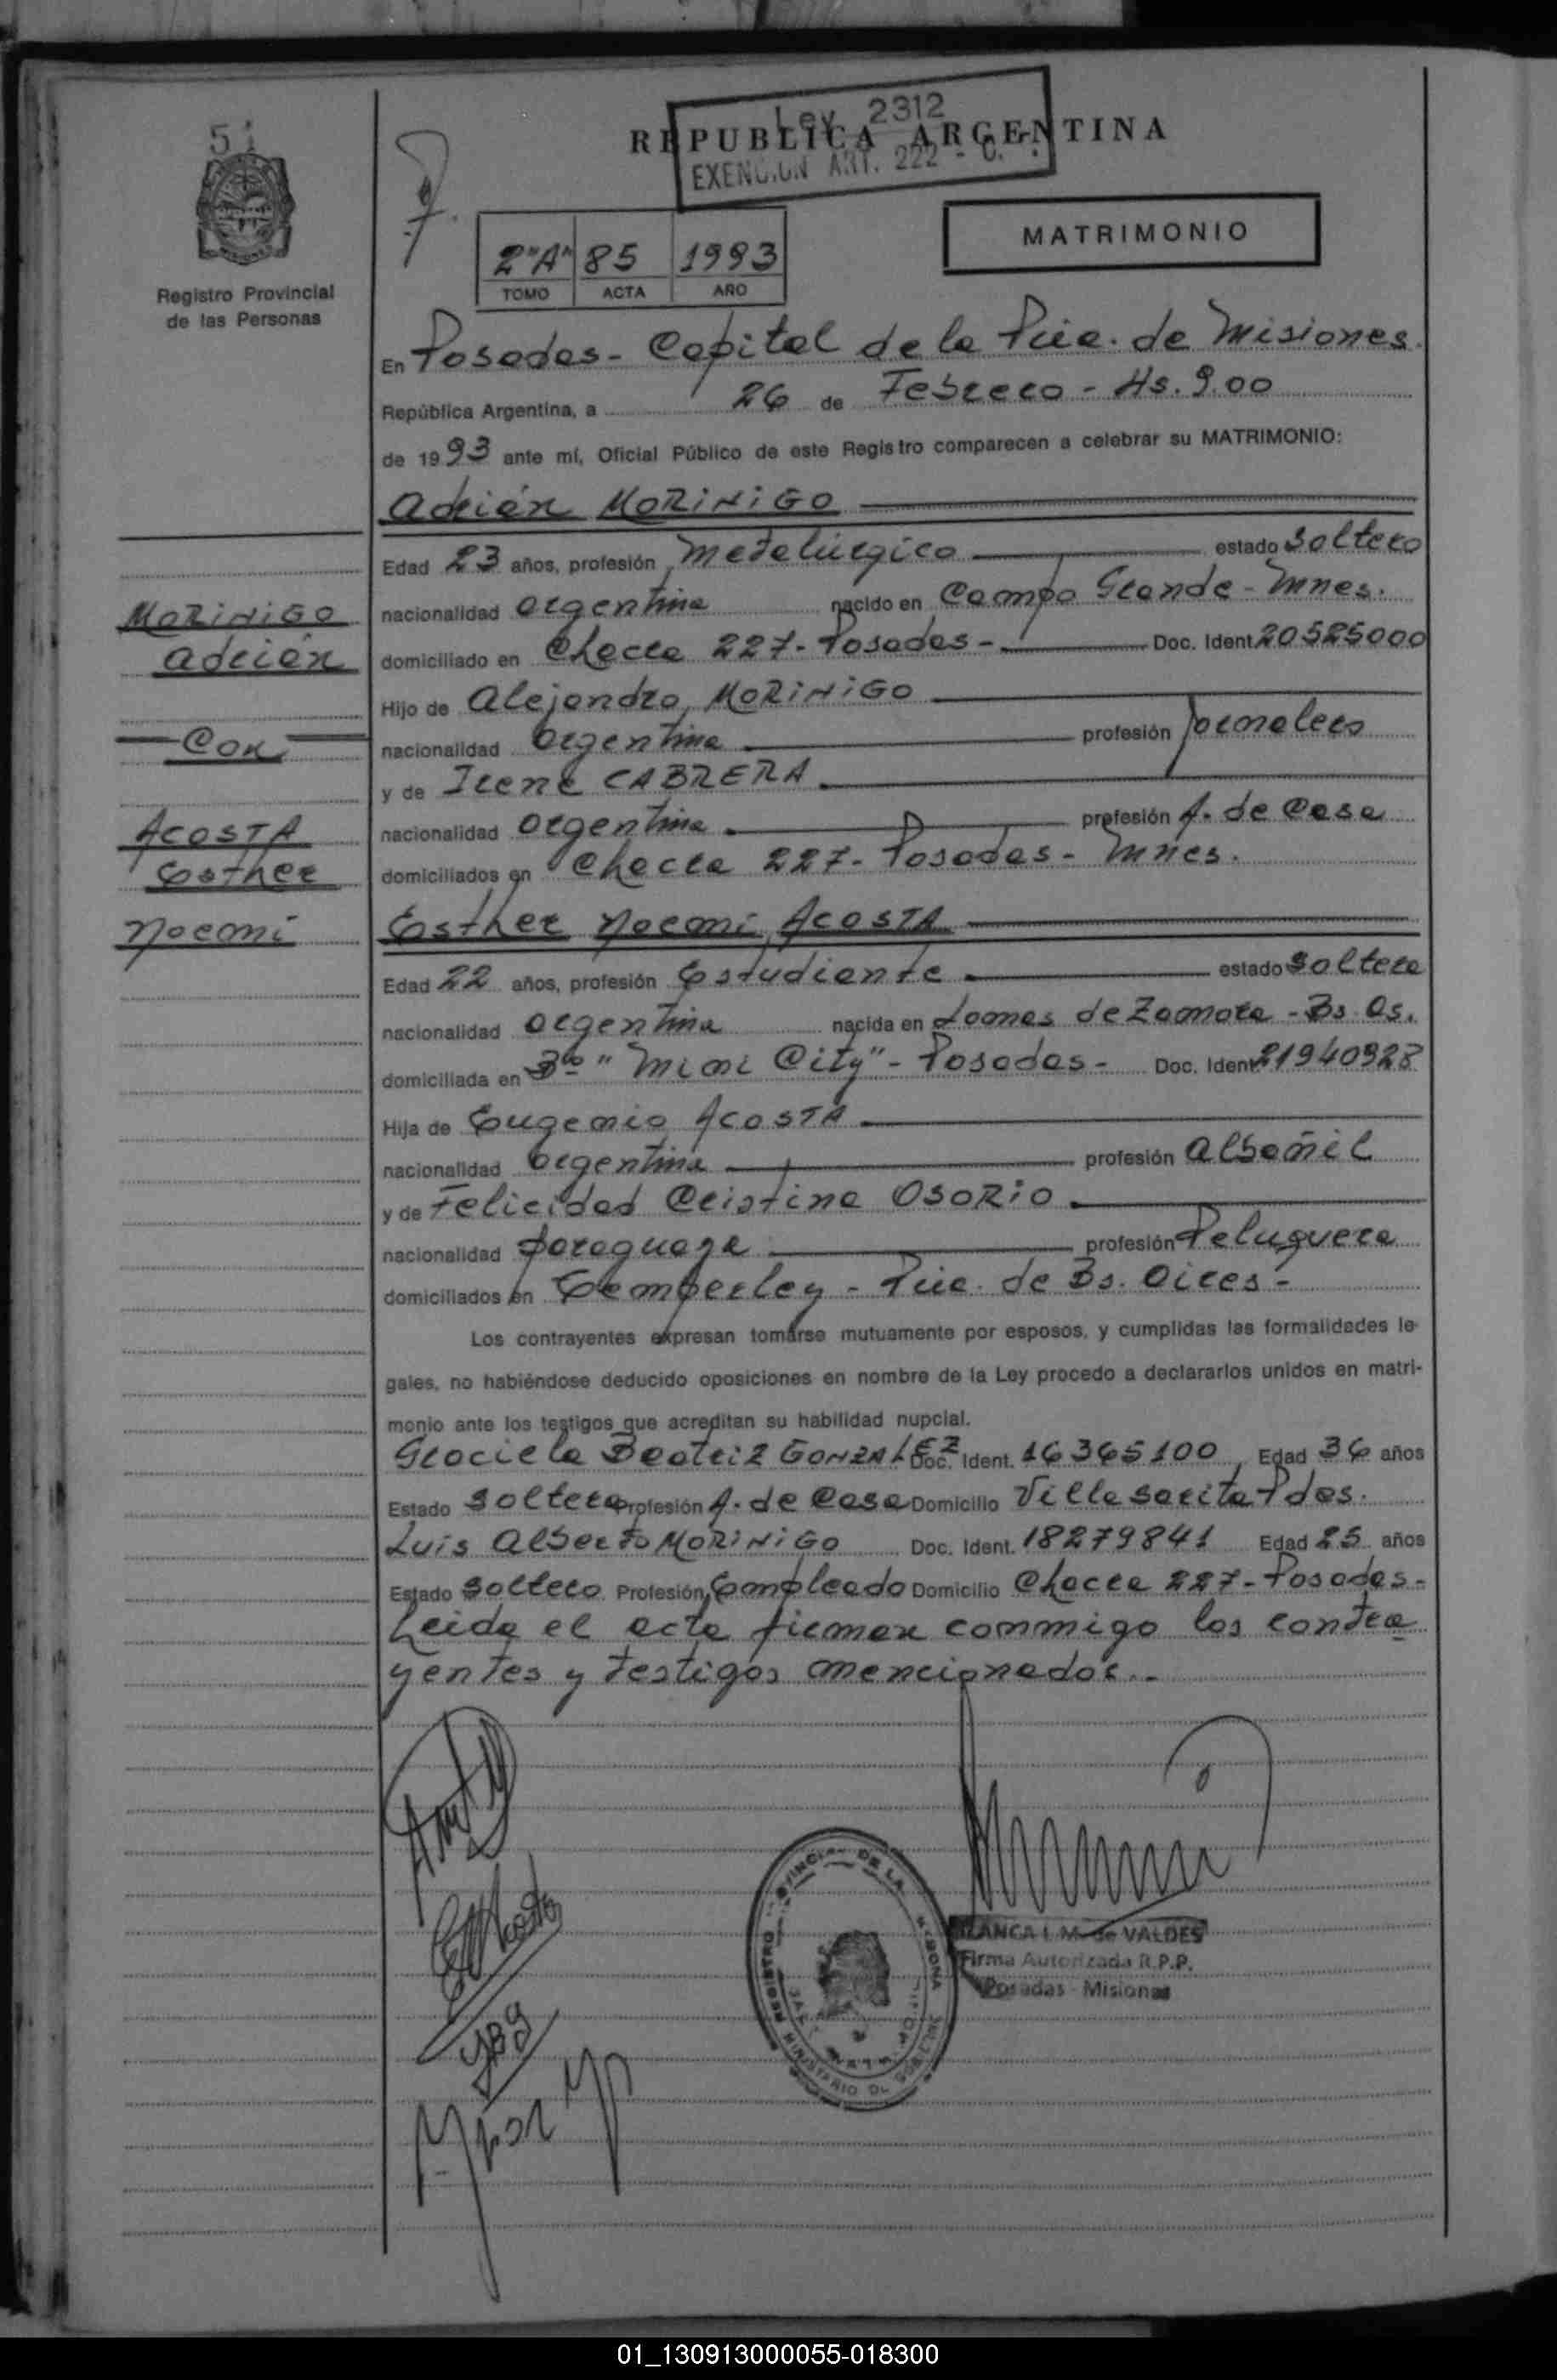 51
Ley 2312
REPUBLICA ARGENTINA
EXENCION ART. 222 - C.
MATRIMONIO
2"A" 85 1993
TOMO ACTA AÑO
Registro Provincial
de las Personas
En Posadas - Capital de la Pcia. de Misiones.
República Argentina, a 26 de Febrero - Hs. 9.00
de 1993 ante mí, Oficial Público de este Registro comparecen a celebrar su MATRIMONIO:
Adrián MORINIGO
Edad 23 años, profesión Metalúrgico estado Soltero
nacionalidad Argentina nacido en Campo Grande - Mnes.
domiciliado en Chacra 227 - Posadas - Doc. Ident 20525000
Hijo de Alejandro MORINIGO
nacionalidad Argentina profesión Jornalero
y de Irene CABRERA
nacionalidad Argentina profesión A. de Casa
domiciliados en Chacra 227 - Posadas - Mnes.
Esther Noemí ACOSTA
Edad 22 años, profesión Estudiante estado Soltera
nacionalidad Argentina nacida en Lomas de Zamora - Bs. As.
domiciliada en Bº "Mini City" - Posadas - Doc. Ident 21940928
Hija de Eugenio ACOSTA
nacionalidad Argentina profesión Albañil
y de Felicidad Cristina OSORIO
nacionalidad Paraguaya profesión Peluquera
domiciliados en Temperley - Pcia. de Bs. Aires -
Los contrayentes expresan tomarse mutuamente por esposos, y cumplidas las formalidades le-
gales, no habiéndose deducido oposiciones en nombre de la Ley procedo a declararlos unidos en matri-
monio ante los testigos que acreditan su habilidad nupcial.
Graciela Beatriz GONZALEZ Doc. Ident. 16365100 Edad 36 años
Estado Soltera Profesión A. de Casa Domicilio Villa Sarita Pdas.
Luis Alberto MORINIGO Doc. Ident. 18279841 Edad 25 años
Estado Soltero Profesión Empleado Domicilio Chacra 227 - Posadas -
Leida el acta firman conmigo los contra
yentes y testigos mencionados. -
MORINIGO
Adrián
- Con -
ACOSTA
Esther
Noemí
BLANCA I. M. de VALDES
Firma Autorizada R.P.P.
Posadas - Misiones
01_130913000055-018300